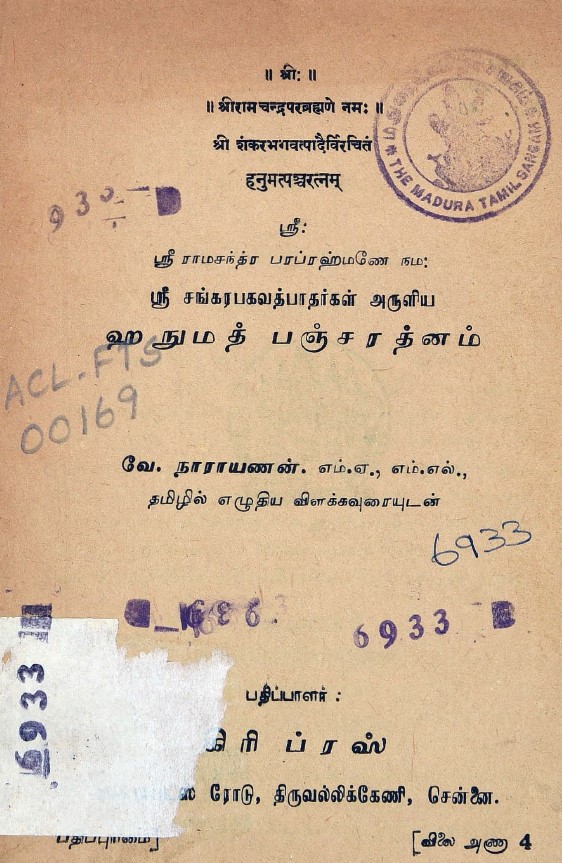 ॥ श्रीः ॥
॥ श्रीरामचन्द्रपरब्रह्मणे नमः ॥
श्री शंकरभगवत्पादैर्विरचितं
हनुमत्पञ्चरत्नम्
THE MADURA TAMIL SANGAM
930
ஸ்ரீ:
ஸ்ரீ ராமசந்த்ர பரப்ரஹ்மணே நம:
ஸ்ரீ சங்கரபகவத்பாதர்கள் அருளிய
ஹநுமத் பஞ்சரத்னம்
ACL.FTS
00169
வே. நாராயணன். எம்.ஏ., எம்.எல்.,
தமிழில் எழுதிய விளக்கவுரையுடன்
6933
6933
6933
பதிப்பாளர் :
ப்ரஸ்
ரோடு, திருவல்லிக்கேணி, சென்னை.
பதிப்புரிமை]
[விலை அணா 4